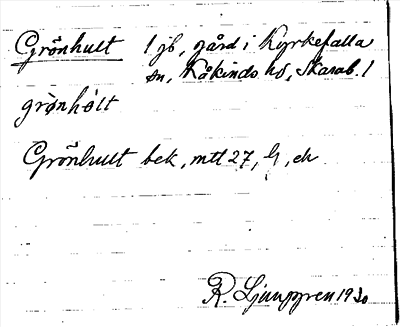 Grönhult 1 jb, gård i Kyrkefalla
sn, Kåkinds hd, Skarab. l
grönhölt
Grönhult bek, mtl 27, G, ek
R. Ljunggren 1930